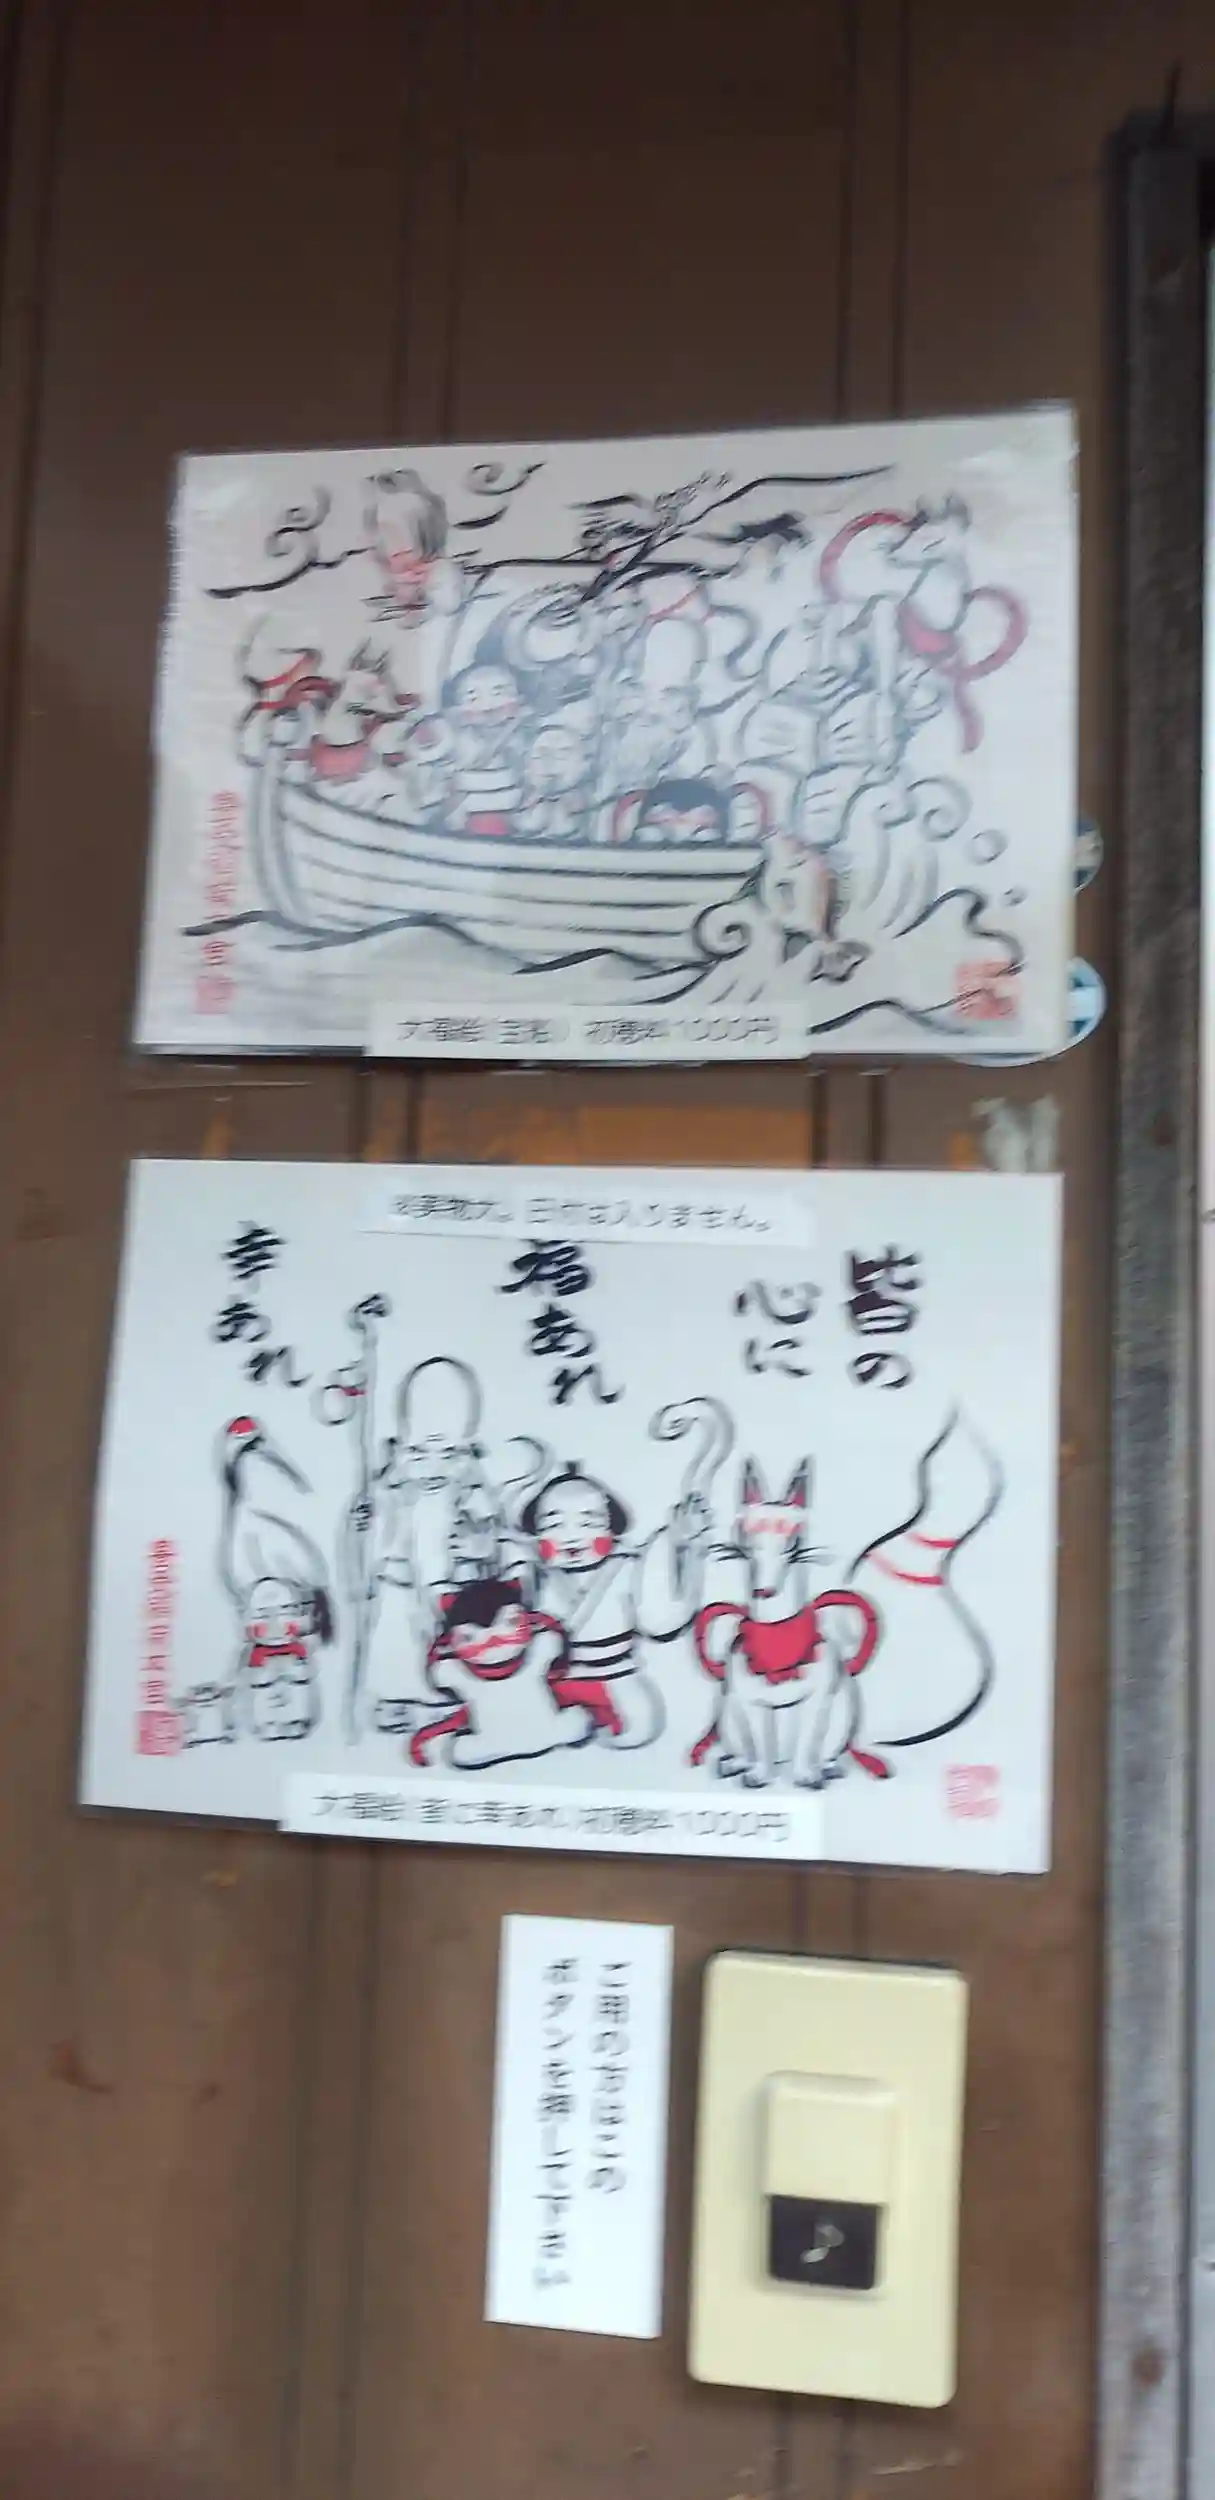 大福絵(宝船) 初穂料1000円
※実物大。日付は入りません。
皆の
心に
福あれ
幸あれ
大福絵(皆に幸あれ)初穂料1000円
ご用の方はこの
ボタンを押して下さい